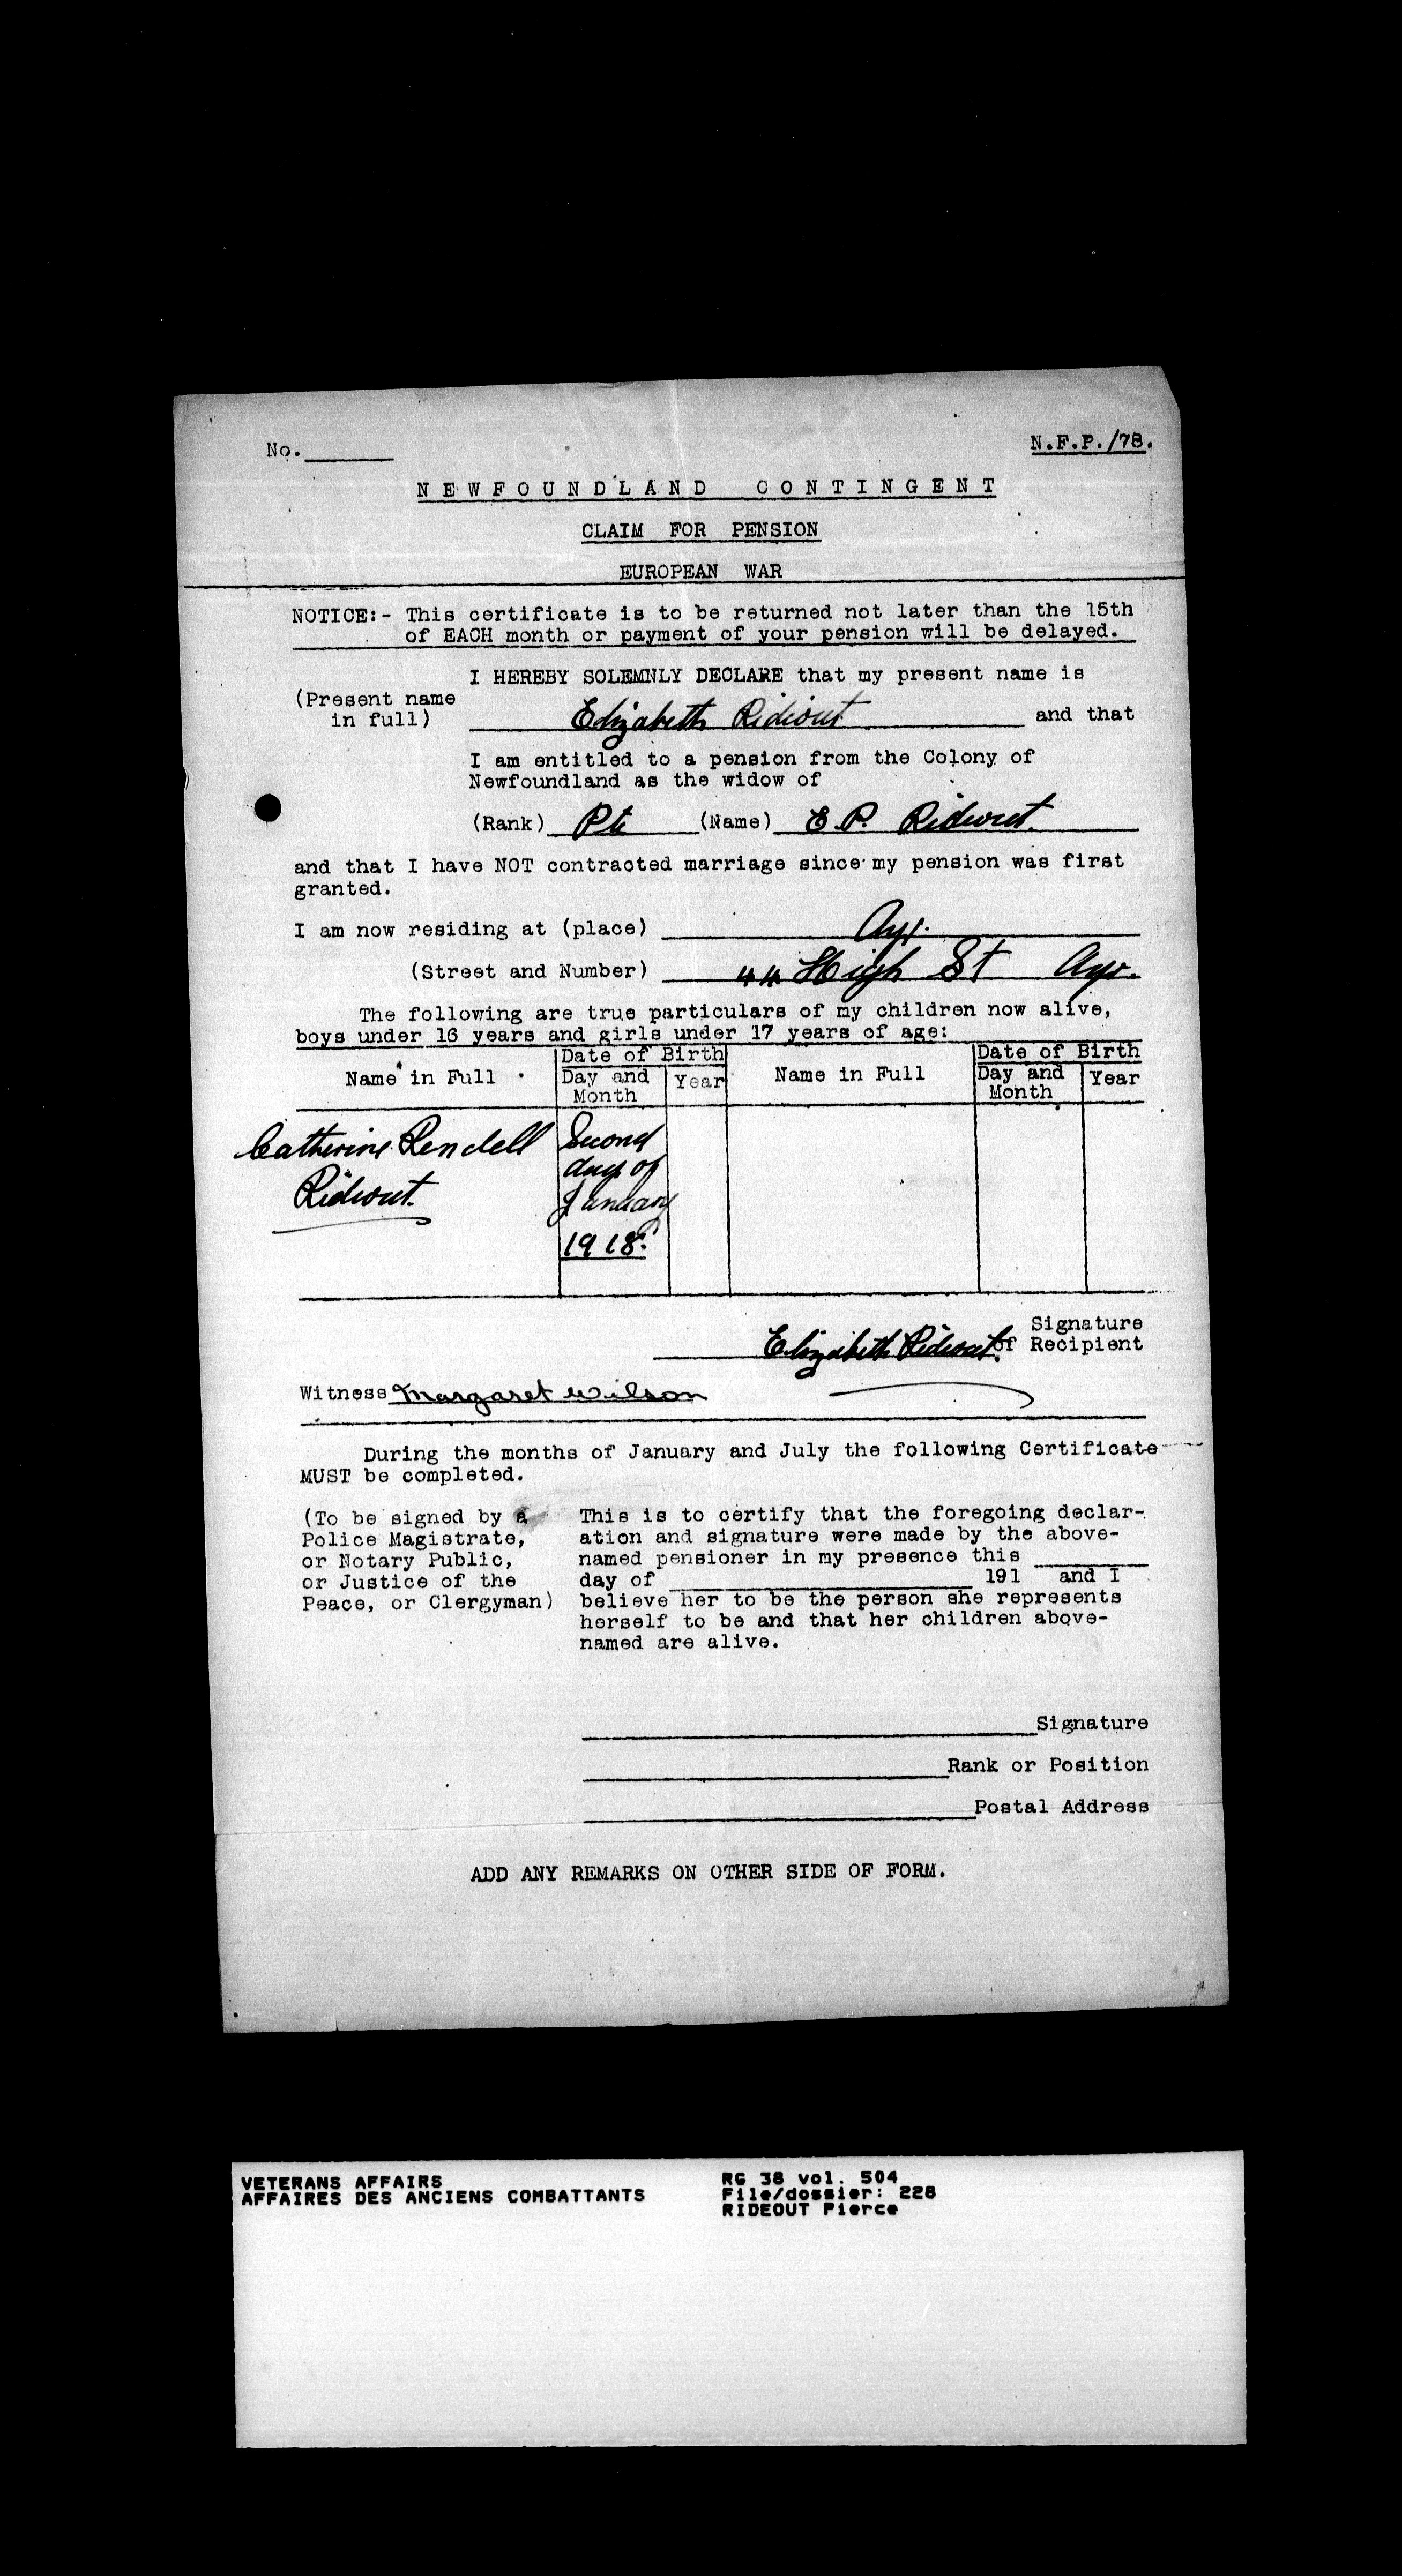 No.______ N.F.P./78.
NEWFOUNDLAND CONTINGENT
CLAIM FOR PENSION
EUROPEAN WAR
NOTICE:- This certificate is to be returned not later than the 15th
of EACH month or payment of your pension will be delayed.
I HEREBY SOLEMNLY DECLARE that my present name is
(Present name
in full) Elizabeth Rideout and that
I am entitled to a pension from the Colony of
Newfoundland as the widow of
(Rank) Pte (Name) E.P. Rideout.
and that I have NOT contracted marriage since my pension was first
granted.
I am now residing at (place) Ayr.
(Street and Number) 44 High St Ayr.
The following are true particulars of my children now alive,
boys under 16 years and girls under 17 years of age:
Name in Full Date of Birth Name in Full Date of Birth
Day and Month Year Day and Month Year
Catherine Rendell Second
day of
Rideout. January
1918.
Signature
Elizabeth Rideout. of Recipient
Witness Margaret Wilson
During the months of January and July the following Certificate
MUST be completed.
(To be signed by a This is to certify that the foregoing declar-
Police Magistrate, ation and signature were made by the above-
or Notary Public, named pensioner in my presence this ______
or Justice of the day of ______ 191 and I
Peace, or Clergyman) believe her to be the person she represents
herself to be and that her children above-
named are alive.
Signature
Rank or Position
Postal Address
ADD ANY REMARKS ON OTHER SIDE OF FORM.
VETERANS AFFAIRS RG 38 vol. 504
AFFAIRES DES ANCIENS COMBATTANTS File/dossier: 228
RIDEOUT Pierce